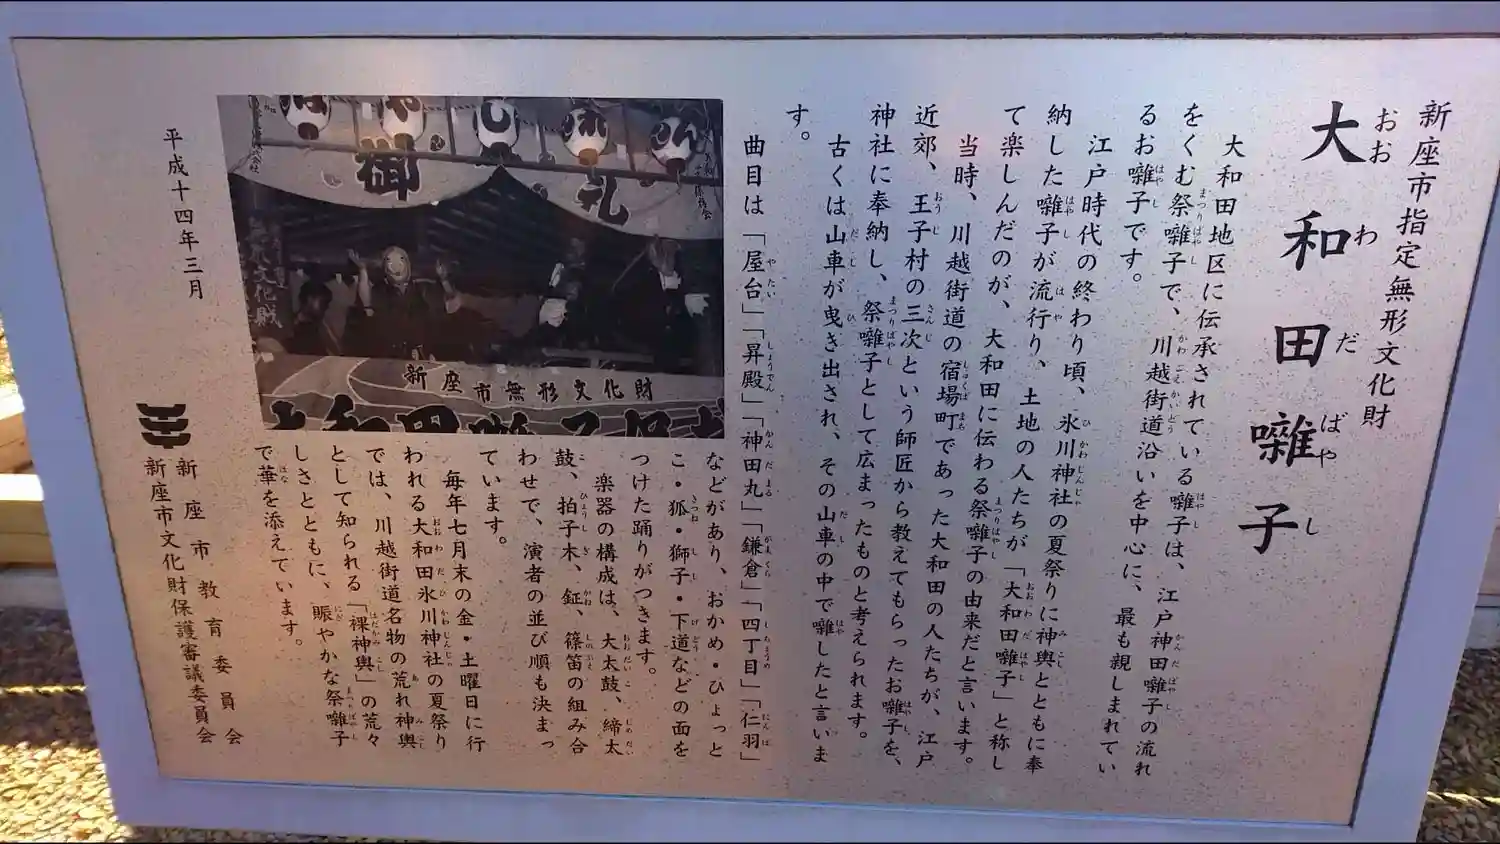 新座市指定無形文化財
大和田囃子
おおわだばやし
大和田地区に伝承されている囃子は、江戸神田囃子の流れ
をくむ祭囃子で、川越街道沿いを中心に、最も親しまれてい
るお囃子です。
江戸時代の終わり頃、氷川神社の夏祭りに神輿とともに奉
納した囃子が流行り、土地の人たちが「大和田囃子」と称し
て楽しんだのが、大和田に伝わる祭囃子の由来だと言います。
当時、川越街道の宿場町であった大和田の人たちが、江戸
近郊、王子村の三次という師匠から教えてもらったお囃子を、
神社に奉納し、祭囃子として広まったものと考えられます。
古くは山車が曳き出され、その山車の中で囃したと言いま
す。
曲目は「屋台」「昇殿」「神田丸」「鎌倉」「四丁目」「仁羽」
などがあり、おかめ・ひょっと
こ・狐・獅子・下道などの面を
つけた踊りがつきます。
楽器の構成は、大太鼓、締太
鼓、拍子木、鉦、篠笛の組み合
わせで、演者の並び順も決まっ
ています。
毎年七月末の金・土曜日に行
われる大和田氷川神社の夏祭り
では、川越街道名物の荒れ神輿
として知られる「裸神輿」の荒々
しさとともに、賑やかな祭囃子
で華を添えています。
平成十四年三月
新座市教育委員会
新座市文化財保護審議委員会
御
礼
新座市無形文化財
大和田囃子保